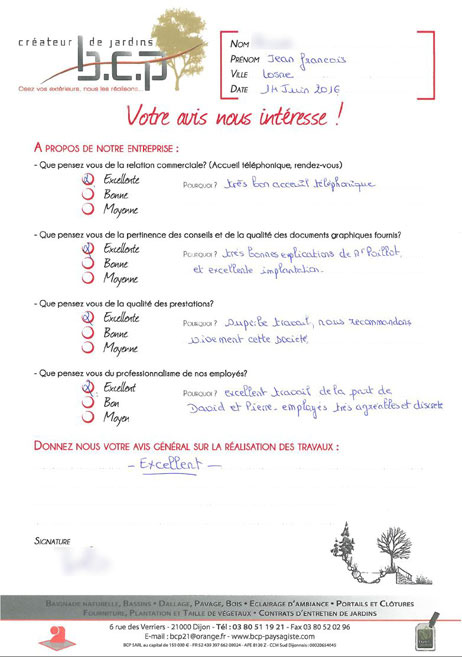 créateur de jardins
b.c.p
Osez vos extérieurs, nous les réalisons...
NOM
PRÉNOM Jean François
VILLE Losne
DATE 14 Juin 2016
Votre avis nous intéresse !
A PROPOS DE NOTRE ENTREPRISE :
- Que pensez vous de la relation commerciale? (Accueil téléphonique, rendez-vous)
Excellente
POURQUOI ? très bon acceuil téléphonique
Bonne
Moyenne
- Que pensez vous de la pertinence des conseils et de la qualité des documents graphiques fournis?
Excellente
POURQUOI ? très bonnes explications de Mr Paillot
Bonne
et excellente implantation.
Moyenne
- Que pensez vous de la qualité des prestations?
Excellente
POURQUOI ? superbe travail, nous recommandons
Bonne
vivement cette société
Moyenne
- Que pensez vous du professionnalisme de nos employés?
Excellent
POURQUOI ? excellent travail de la part de
Bon
David et Pierre. employés très agréables et discrets
Moyen
DONNEZ NOUS VOTRE AVIS GÉNÉRAL SUR LA RÉALISATION DES TRAVAUX :
- Excellent -
SIGNATURE
BAIGNADE NATURELLE, BASSINS • DALLAGE, PAVAGE, BOIS • ECLAIRAGE D'AMBIANCE • PORTAILS ET CLÔTURES
FOURNITURE, PLANTATION ET TAILLE DE VÉGÉTAUX • CONTRATS D'ENTRETIEN DE JARDINS
6 rue des Verriers - 21000 Dijon - Tél : 03 80 51 19 21 - Fax 03 80 52 02 96
E-mail : bcp21@orange.fr - www.bcp-paysagiste.com